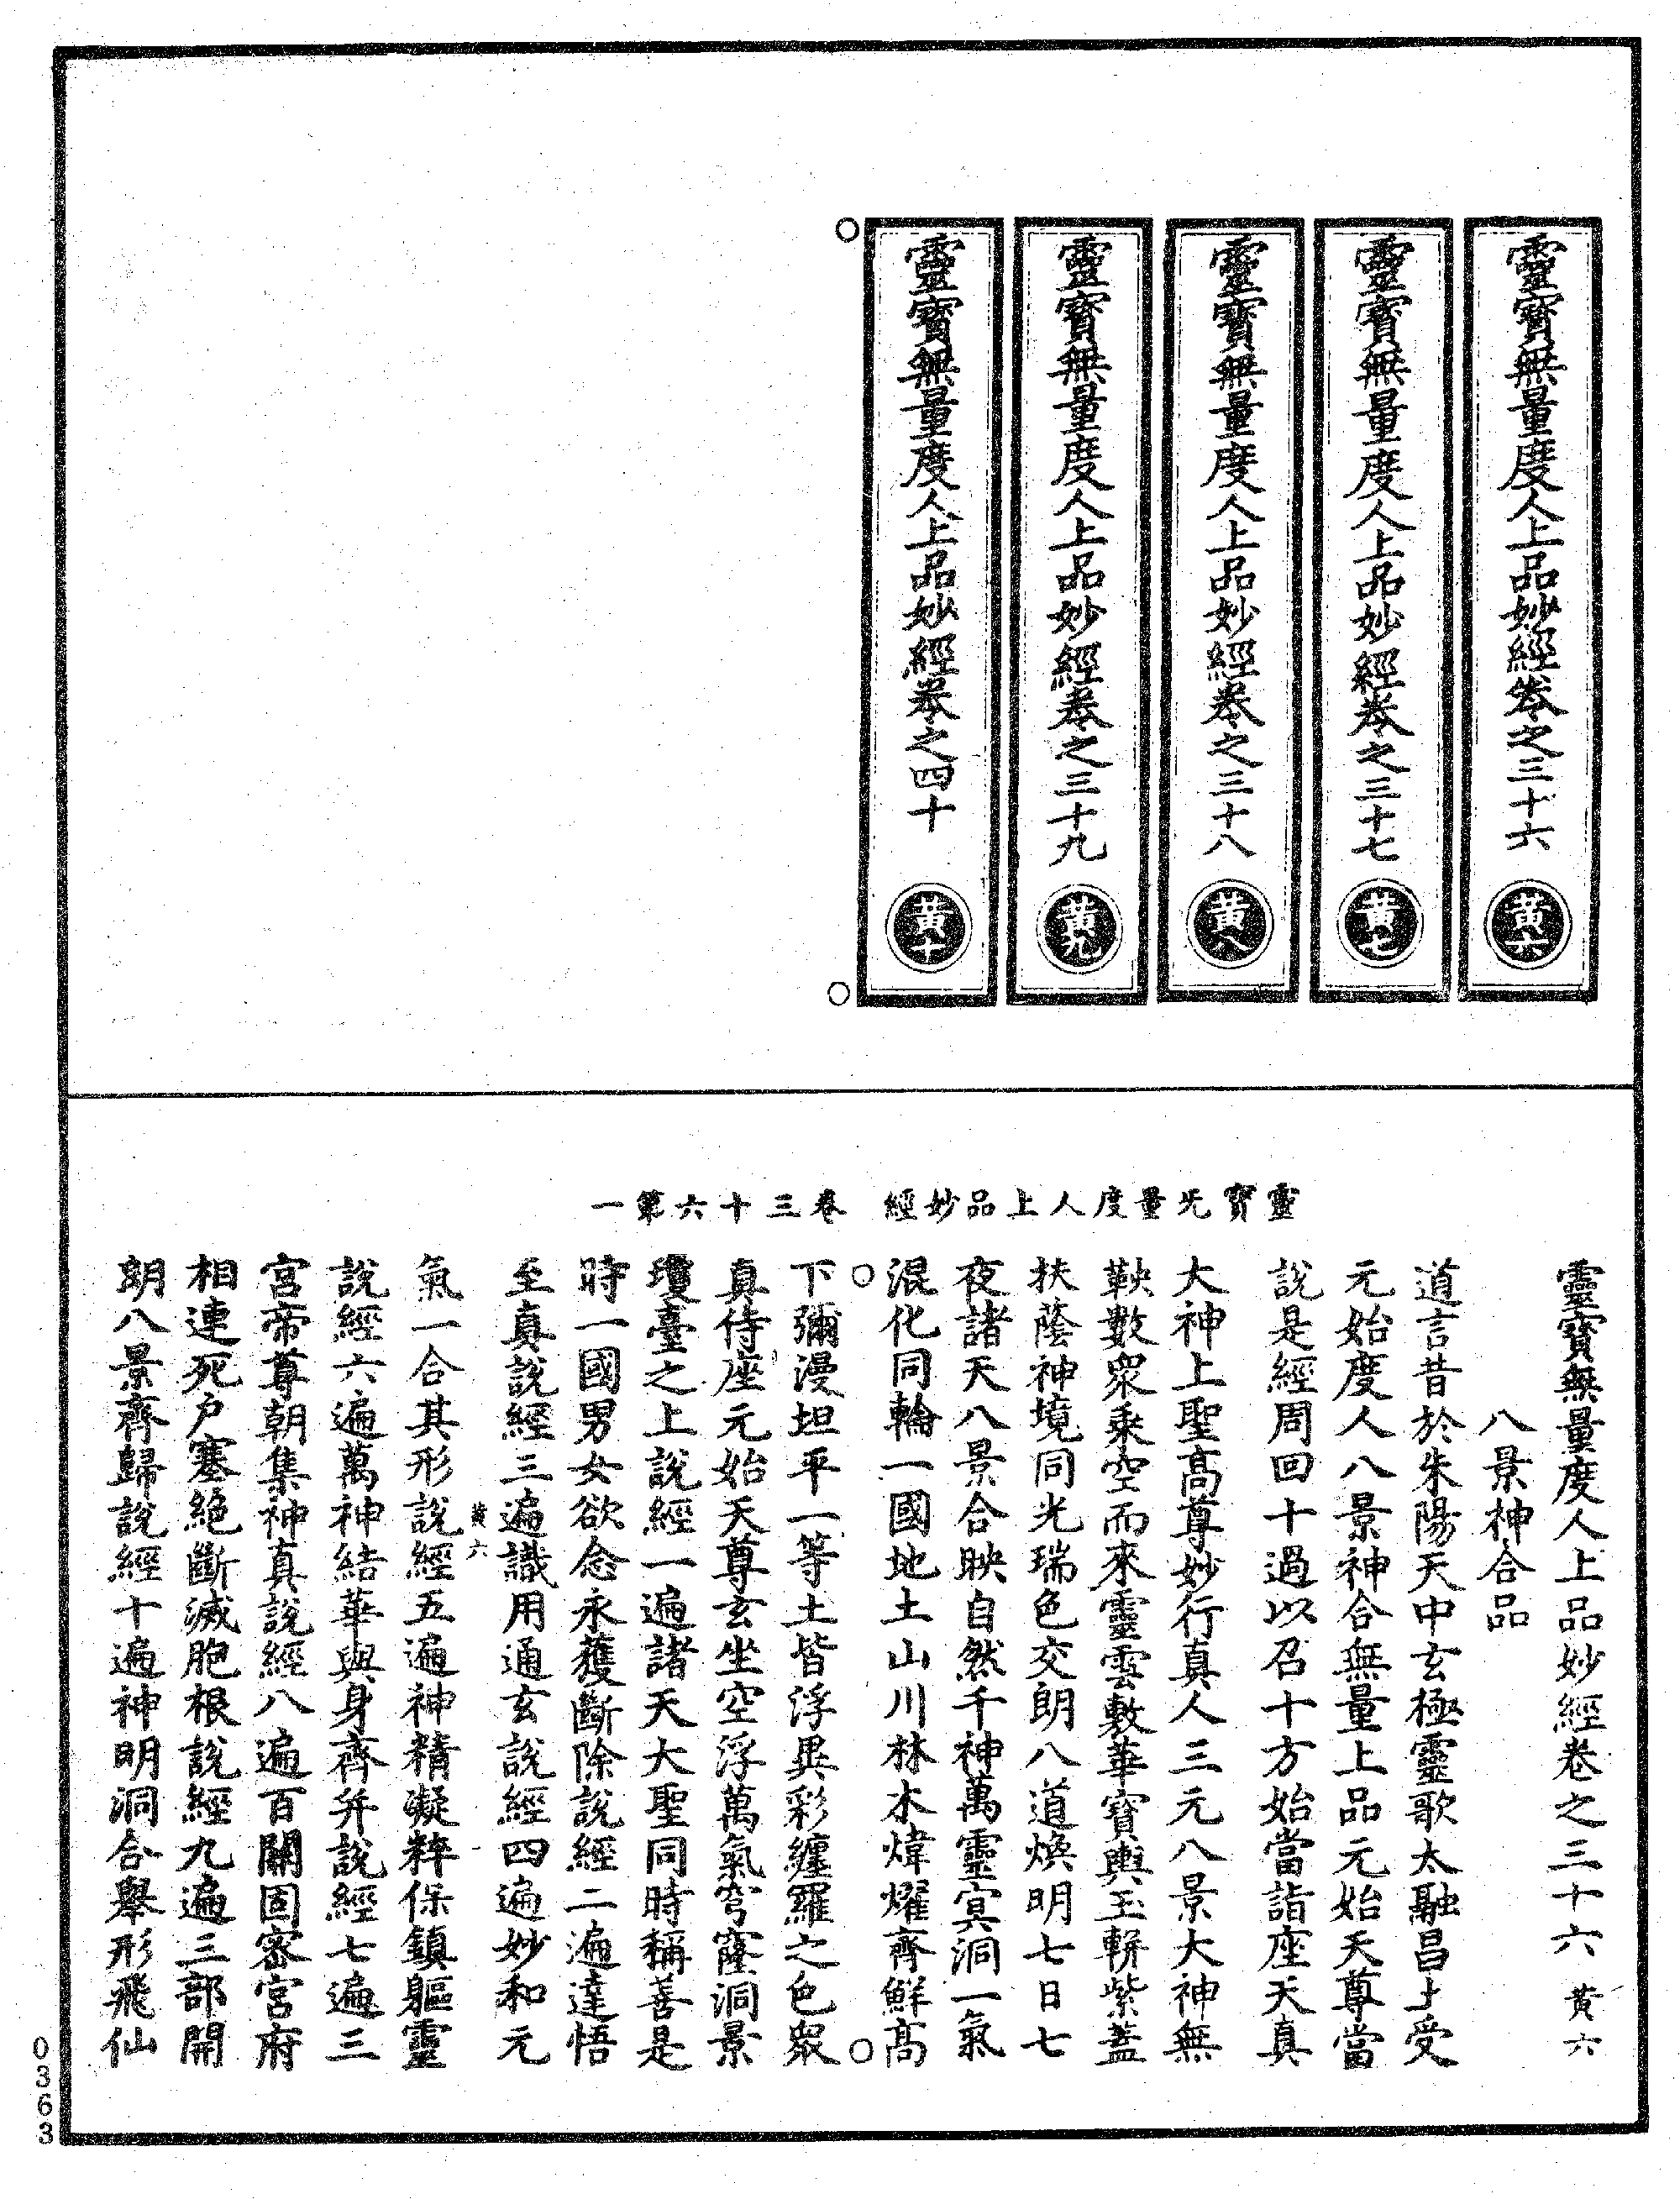 靈寶無量度人上品妙經卷之三十六
黃六
靈寶無量度人上品妙經卷之三十七
黃七
靈寶無量度人上品妙經卷之三十八
黃八
靈寶無量度人上品妙經卷之三十九
黃九
靈寶無量度人上品妙經卷之四十
黃十
靈寶旡量度人上品妙經 卷三十六第一
靈寶無量度人上品妙經卷之三十六 黃六
八景神合品
道言昔於朱陽天中玄極靈歌太融昌上受
元始度人八景神合無量上品元始天尊當
說是經周回十過以召十方始當詣座天真
大神上聖髙尊妙行真人三元八景大神無
鞅數衆乘空而來靈雲敷華寶輿玉輧紫蓋
扶蔭神境同光瑞色交朗八道煥明七日七
夜諸天八景合映自然千神萬靈冥洞一氣
混化同輪一國地土山川林木煒燿齊鮮髙
下彌漫坦平一等土皆浮異彩纏羅之色衆
真侍座元始天尊玄坐空浮萬氣穹窿洞景
瓊臺之上說經一遍諸天大聖同時稱善是
時一國男女欲念永獲斷除說經二遍達悟
至真說經三遍識用通玄說經四遍妙和元
黃六
氣一合其形說經五遍神精凝粹保鎮軀靈
說經六遍萬神結華與身齊并說經七遍三
宮帝尊朝集神真說經八遍百關固密宮府
相連死戶塞絕斷滅胞根說經九遍三部開
朗八景齊歸說經十遍神明洞合舉形飛仙
0363